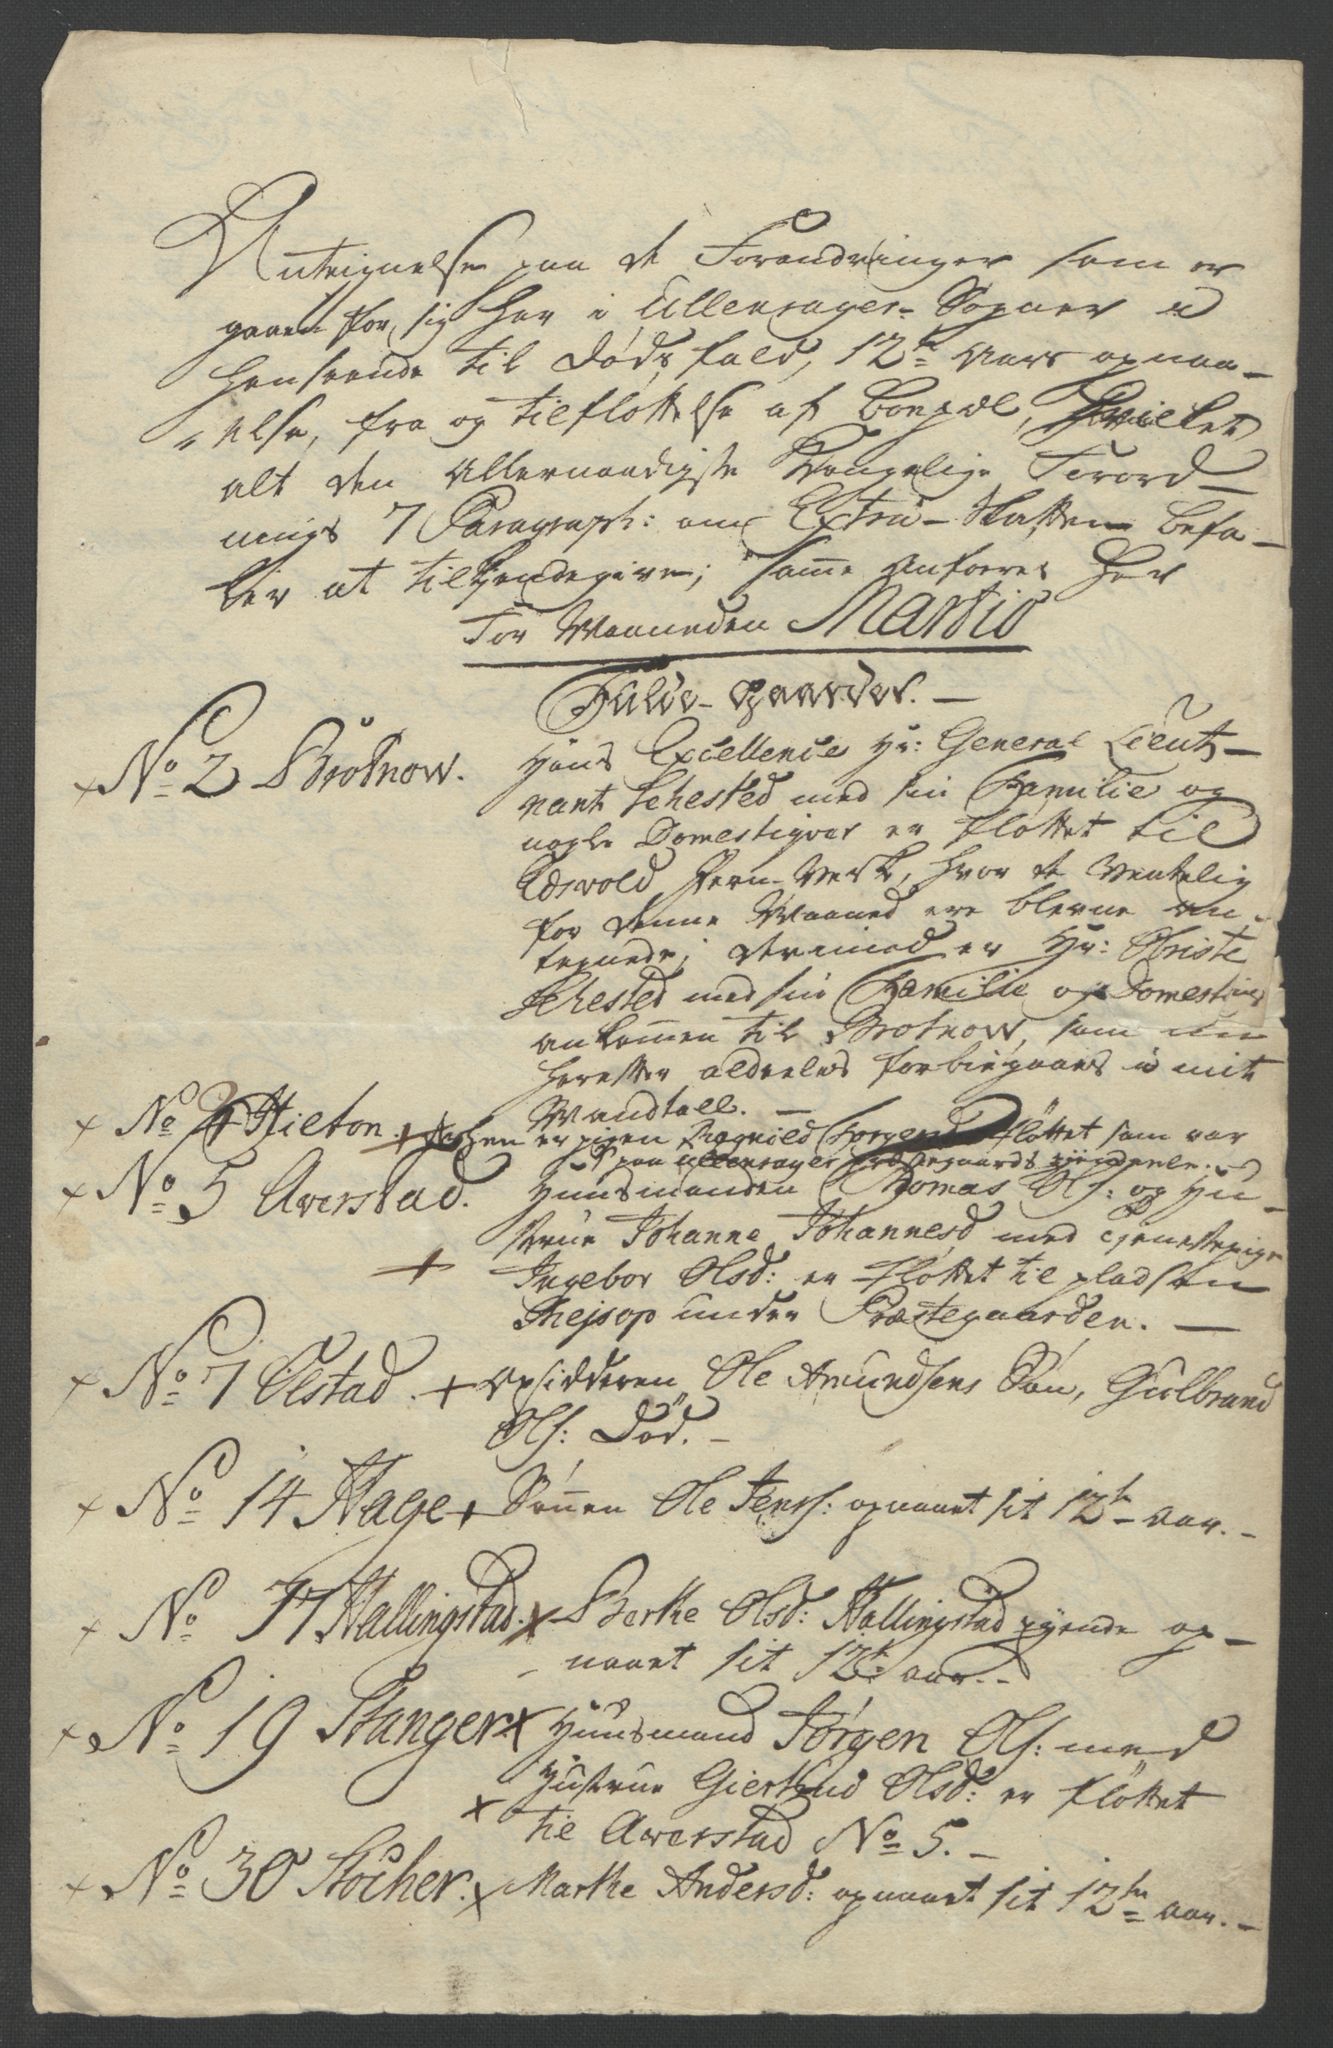 Anteignelse paa de Forandringer som er
gaaen for sig her i Ullensager Sogner i
henseende til Døds fald, 12te Aars opnaa-
else, fra og tilfløttelse af boepæl, hvilket
alt den Allernaadigste Kongelige Forord-
nings 7 Paragraph: om Extra-Skatten befa-
ler at tilkiendegive; samme anføres her
For Maaneden Martio
Fulde-gaarder. -
No 2 Brotnow. Hans Excellence Hr: General Lieut-
nant Sehested med sin Familie og
nogle Domestiqver er fløttet til
Edsvold Jern-Verk, hvor de Ventelig
for denne Maaned ere blevne an-
tegnede; derimod er Hr: Obriste
Sehested med sin Familie og Domestiqver
ankommen til Brotnow, som nu
herefter aldeeles forbiegaaes i mit
Mandtall. -
No 4 Hilton + er pigen Ragnild fløttet som var
paa Ullensager Præstegaards
No 5 Averstad. Huusmanden Thomas Ols: og Hu-
strue Johanne Johannesd med tienestepige
+ Ingebor Olsd: er fløttet til pladsen
Skejsop under Præstegaarden. -
No 7 Ølstad. + Opsidderen Ole Amundsens Søn, Gulbrand
Ols: Død. -
No 14 Hage + Sønnen Ole Jens: opnaaet sit 12te aar. -
No 17 Hallingstad. x Berthe Olsd: Hallingstad op-
naaet sit 12te aar. -
No 19 Stanger x Huusmand Jørgen Ols: med
Hustrue Gierthrud Olsd: er fløttet
x til Averstad No 5. -
No 30 Stocher. x Marthe Andersd: opnaaet sit 12te aar. -